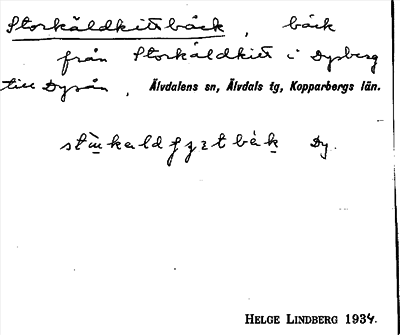 Storkåldkittbäck, bäck
från Storkåldkitt i Dysberg
till Dysån, Älvdalens sn, Älvdals tg, Kopparbergs län.
Dy.
HELGE LINDBERG 1934.